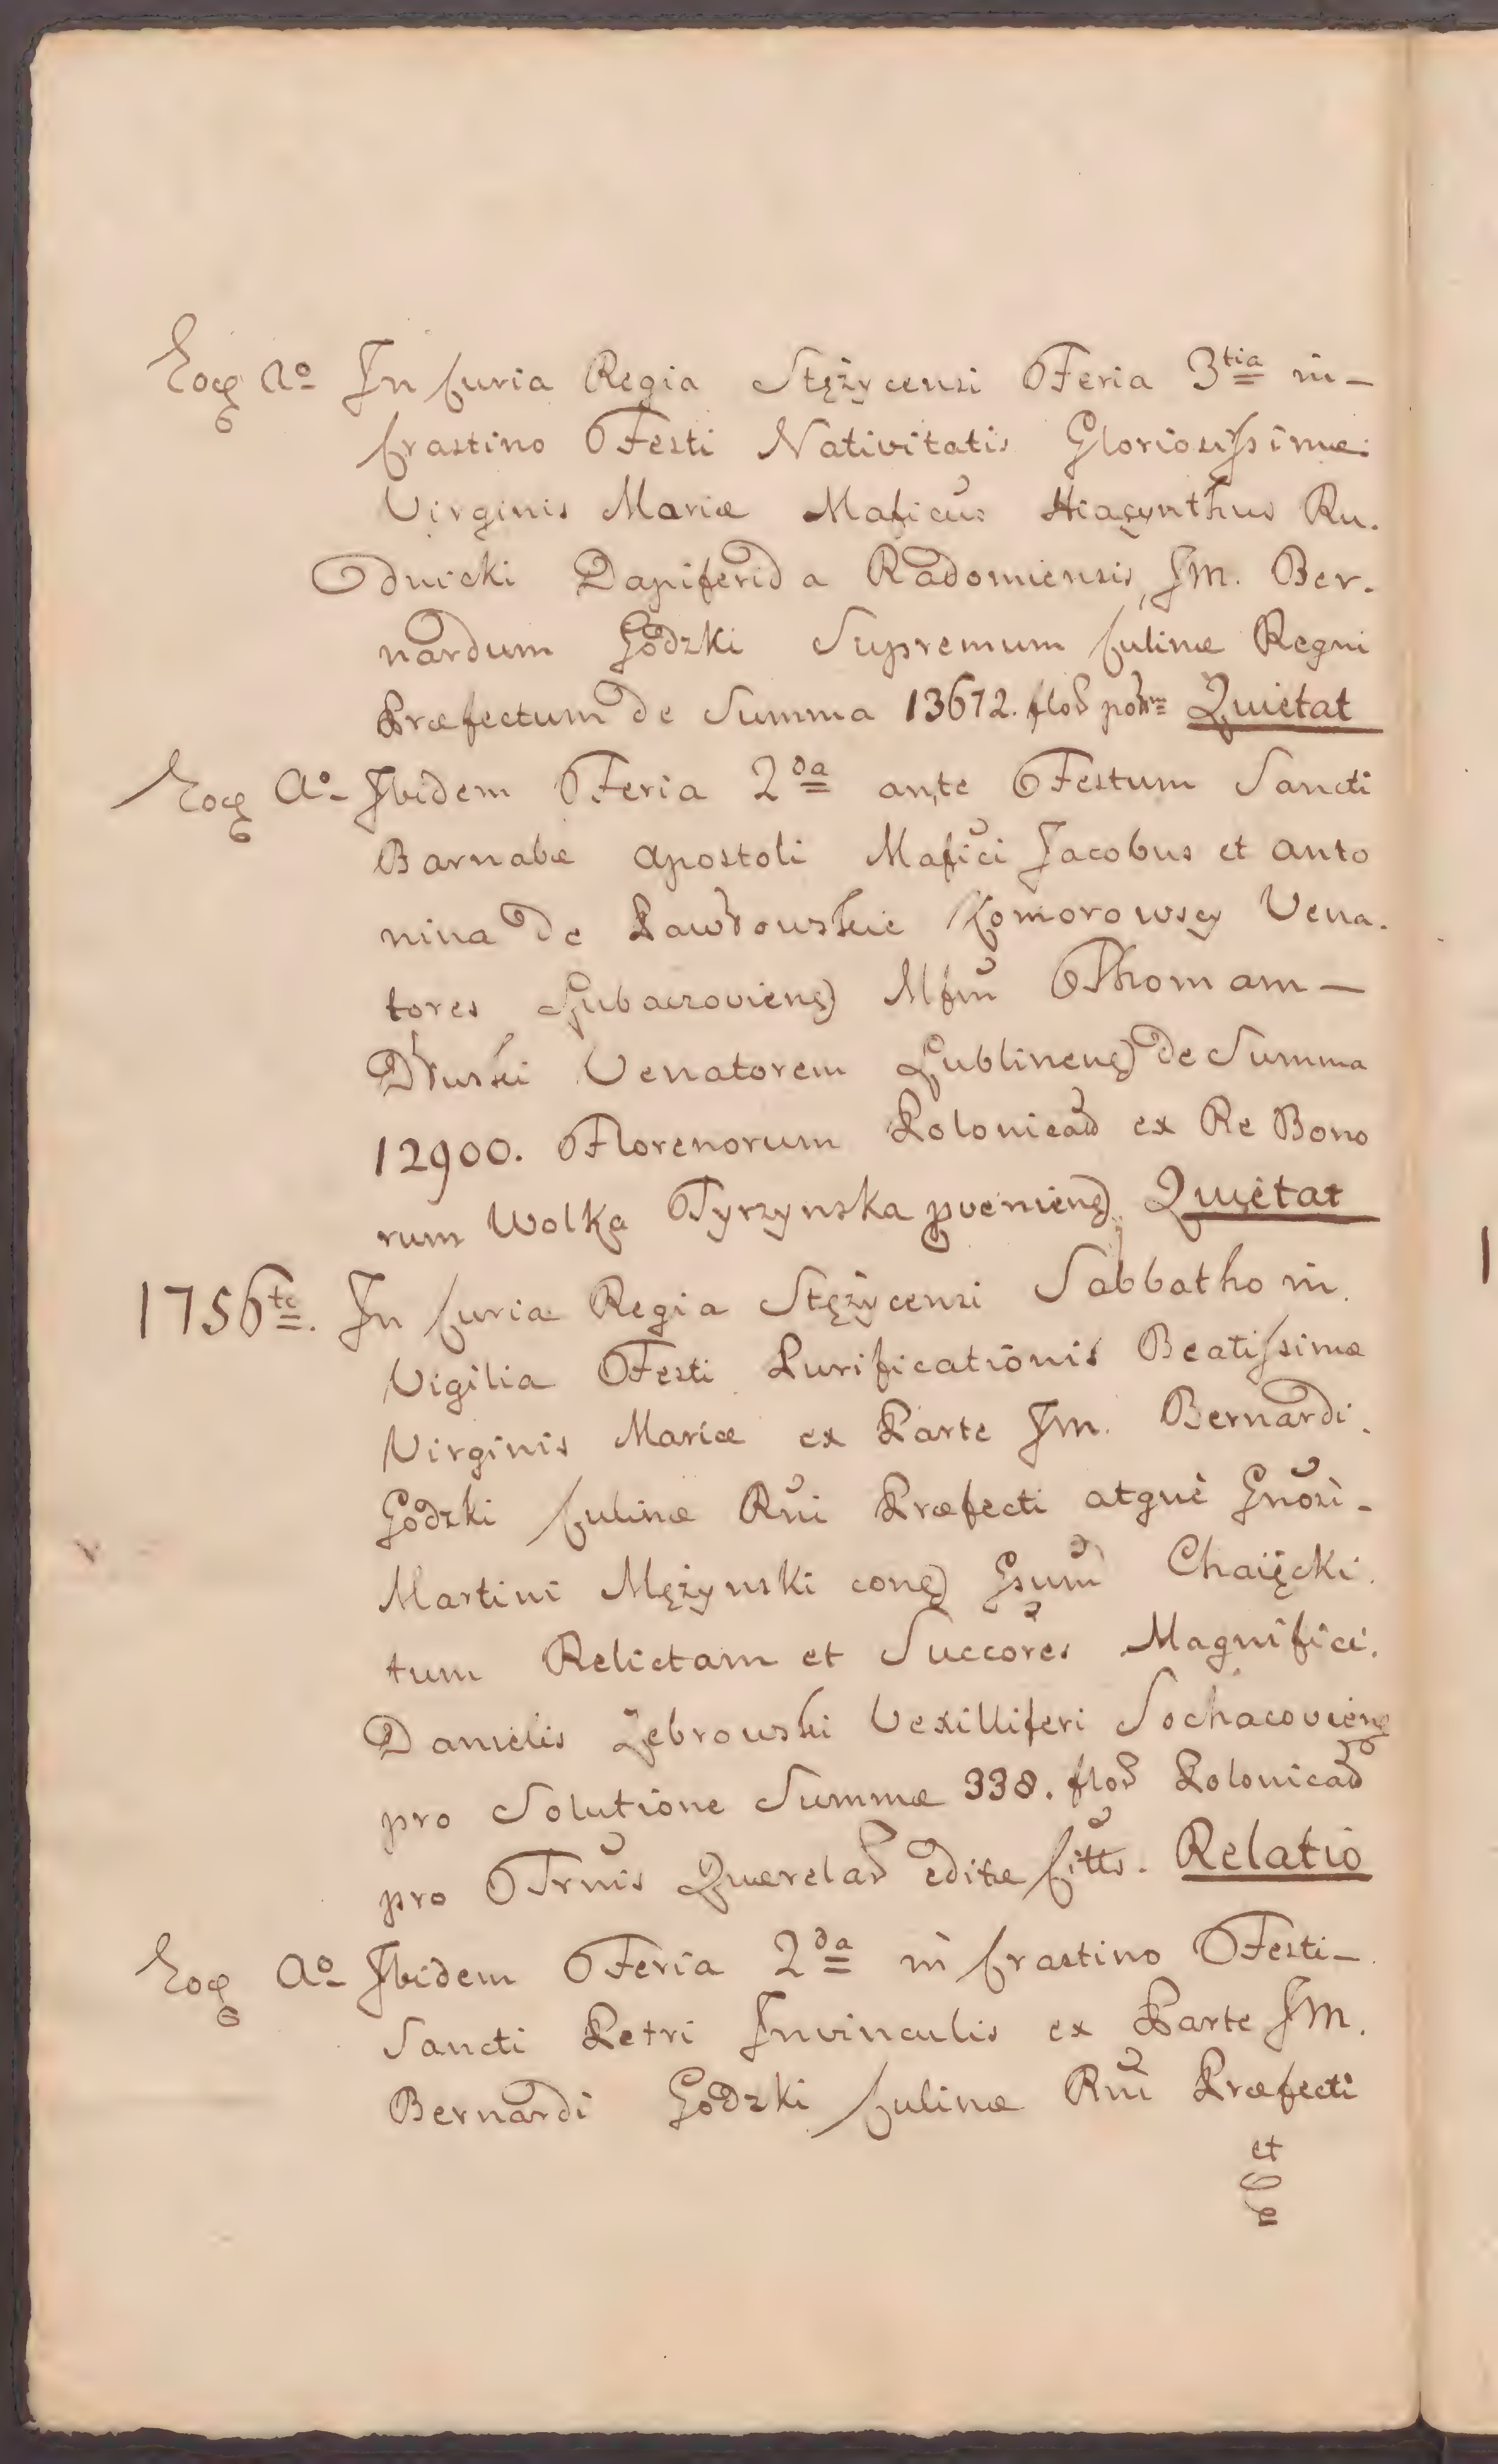 Eoq Ao In Curia Regia Stężycensi Feria 3tia in-
Crastino Festi Nativitatis Gloriosissimæ
Virginis Mariæ Maficus Hiacynthus Ru.
dnicki Dapiferida Radomiensis, JM. Ber.
nardum Godzki Supremum Culinæ Regni
Præfectum de Summa 13672. flor Quietat
Eoq Ao Ibidem Feria 2da ante Festum Sancti
Barnabæ Apostoli Mafici Jacobus et Anto
nina de Pawłowskie Komorowscy Vena.
tores Lubaczoviens Mfm Thomam-
Dłuski Venatorem Lublinens de Summa
12900. Florenorum Polonical ex Re Bono
rum Wolka Tyrzynska pveniens Quietat
1756te. In Curia Regia Stężycensi Sabbatho in.
Vigilia Festi Purificationis Beatissimæ
Virginis Mariæ ex Parte JM. Bernardi.
Godzki Culinæ Rni Præfecti atque Gnosi-
Martini Mężynski cons Gsum Chaięcki.
tum Relictam et Succores Magnifici.
Danielis Zebrowski Vexilliferi Sochacoviens
pro Solutione Summæ 338. flor Polonical
pro Trnis Querelar editæ Citts. Relatio
Eoq Ao Ibidem Feria 2da in Crastino Festi-
Sancti Petri Invinculis ex Parte JM.
Bernardi Godzki Culinæ Rni Præfecti
et